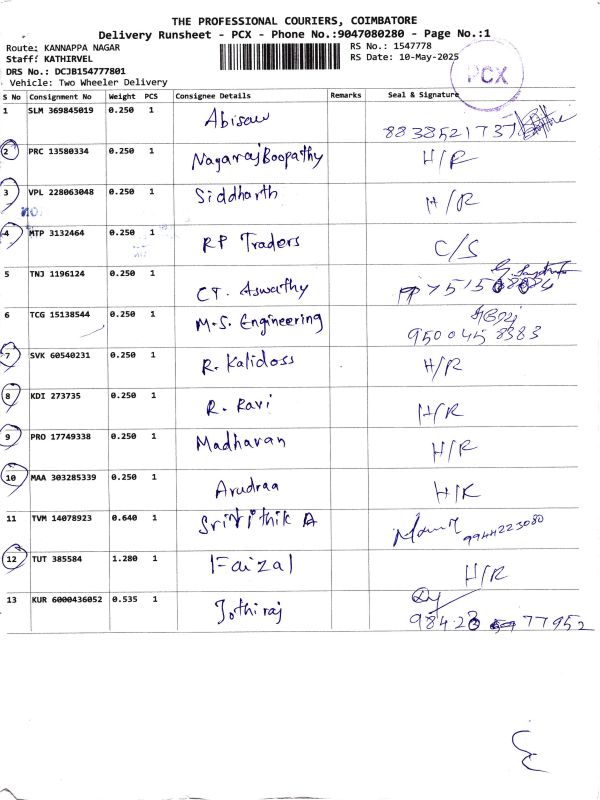 THE PROFESSIONAL COURIERS, COIMBATORE
Delivery Runsheet - PCX - Phone No.:9047080280 - Page No.:1
Route: KANNAPPA NAGAR RS No.: 1547778
Staff: KATHIRVEL RS Date: 10-May-2025
DRS No.: DCJB154777801
Vehicle: Two Wheeler Delivery
PCX
S No Consignment No Weight PCS Consignee Details Remarks Seal & Signature
1 SLM 369845019 0.250 1 Abisaw 8838521737
2 PRC 13580334 0.250 1 Nagaraj Boopathy H/R
3 VPL 228063048 0.250 1 Siddharth H/R
4 MTP 3132464 0.250 1 RP Traders C/S
5 TNJ 1196124 0.250 1 CT. Aswathy
6 TCG 15138544 0.250 1 M.S. Engineering 9500458383
7 SVK 60540231 0.250 1 R. Kalidoss H/R
8 KDI 273735 0.250 1 R. Ravi H/R
9 PRO 17749338 0.250 1 Madhavan H/R
10 MAA 303285339 0.250 1 Arudraa H/R
11 TVM 14078923 0.640 1 9944223080
12 TUT 385584 1.280 1 Faizal H/R
13 KUR 6000436052 0.535 1 Jothiraj 98423 77952